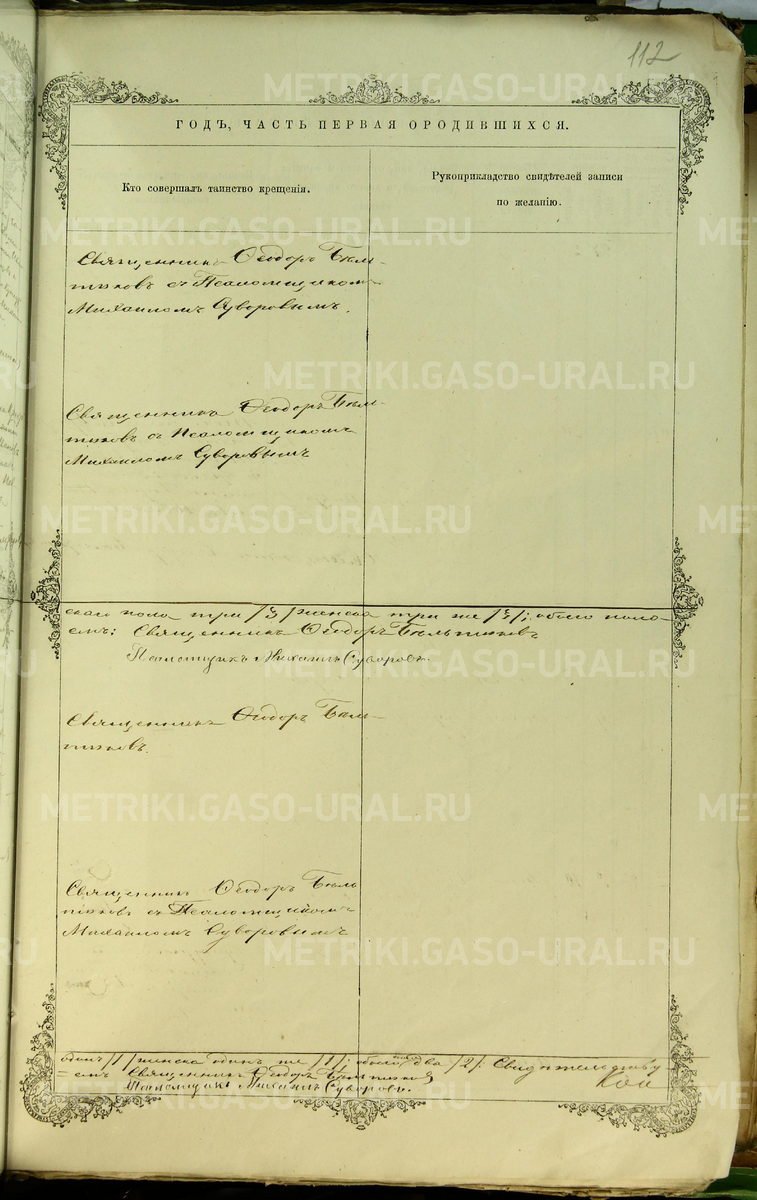 112
ГОДЪ, ЧАСТЬ ПЕРВАЯ О РОДИВШИХСЯ.
Кто совершалъ таинство крещенія.
Рукоприкладство свидѣтелей записи
по желанію.
Священникъ Ѳеодоръ Бѣль-
тиковъ съ Псаломщикомъ
Михаиломъ Суворовымъ.
Священникъ Ѳеодоръ Бѣль-
тиковъ съ Псаломщикомъ
Михаиломъ Суворовымъ
скаго пола три /3/ женска три же /3/; обоего пола
емъ: Священникъ Ѳеодоръ Бѣльтиковъ
Псаломщикъ Михаилъ Суворовъ.
Священникъ Ѳеодоръ Бѣль-
тиковъ.
Священникъ Ѳеодоръ Бѣль
тиковъ съ Псаломщикомъ
Михаиломъ Суворовымъ
одинъ /1/ женска одинъ же /1/; обоего пола два /2/. Свидѣтельству
=емъ Священникъ Ѳеодоръ Бѣльтиковъ
Псаломщикъ Михаилъ Суворовъ.
METRIKI.GASO-URAL.RU